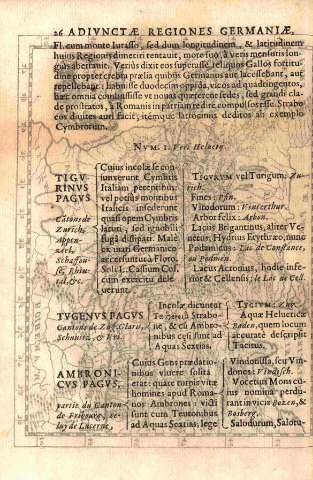 26 ADIVNCTÆ REGIONES GERMANIÆ.
Fl. cum monte Iurasso, sed dum longitudinem, & latitudinem
huius Regionis dimetiri tentauit, more suo, à veris mensuris lon-
giùs aberrauit. Veriùs dixit eos superasse reliquos Gallos fortitu-
dine propter crebra prælia quibus Germanos aut lacessebant, aut
repellebant: habuisse duodecim oppida, vicos ad quadringentos,
hæc omnia conflasisse vt nouas quærerent sedes, sed grandi cla-
de prostratos, à Romanis in patriam redire compulsos esse. Strabo
eos diuites auri facit, itémque latrociniis deditos ab exemplo
Cymbrorum.
NVM. I. Veri Heluetij.
TIGV
RINVS
PAGVS
Cãtons de
Zurich,
Appen-
zael,
Schaffou-
se, Rhin-
tal, &c.
Cuius incolæ se con
iunxerunt Cymbris
Italiam petentibus:
vel potiùs montibus
Italicis insederunt
quasi opem Cymbris
laturi, sed ignobili
fuga dissipati. Malè
ex iuari Germanico
accersuntur à Floro.
Soli L. Cassium Cos.
cum exercitu dele
uerunt.
TIGVRVM vel Turgum: Zu-
rich.
Fines: Pfin.
Vitodorum: Vinterthur.
Arbor felix: Arbon.
Lacus Brigantinus, aliter Ve-
netus, Hyotius Erythræo, nunc
Podamicus: Lac de Constance,
ou Podmen.
Lacus Acronius, hodie infe-
rior & Cellensis: le Lac de Cell.
TVGENVS PAGVS
Cantons de Zug, Claris,
Schuuitz, & Vri.
Incolæ dicuntur
Toygeni Strabo-
ne, & cũ Ambro-
nibus cæsi sunt ad
Aquas Sextias.
TVGIVM: Zug.
Aquæ Helueticæ
Baden, quem locum
accuratè descripsit
Tacitus.
AMBRONI-
CVS PAGVS,
partie du Canton
de Fribourg, ce-
luy de Lucerne,
Cuius Gens prædatio-
nibus viuere solita
erat: quare turpis vitæ
homines apud Roma-
nos Ambrones: victi
sunt cum Teutonibus
ad Aquas Sextias, lege
Vindonissa, seu Vin-
donis: Vindisch.
Vocetius Mons cu-
ius nomina perdu-
rant in vicis Bozen, &
Bozberg.
Salodurum, Salotu-